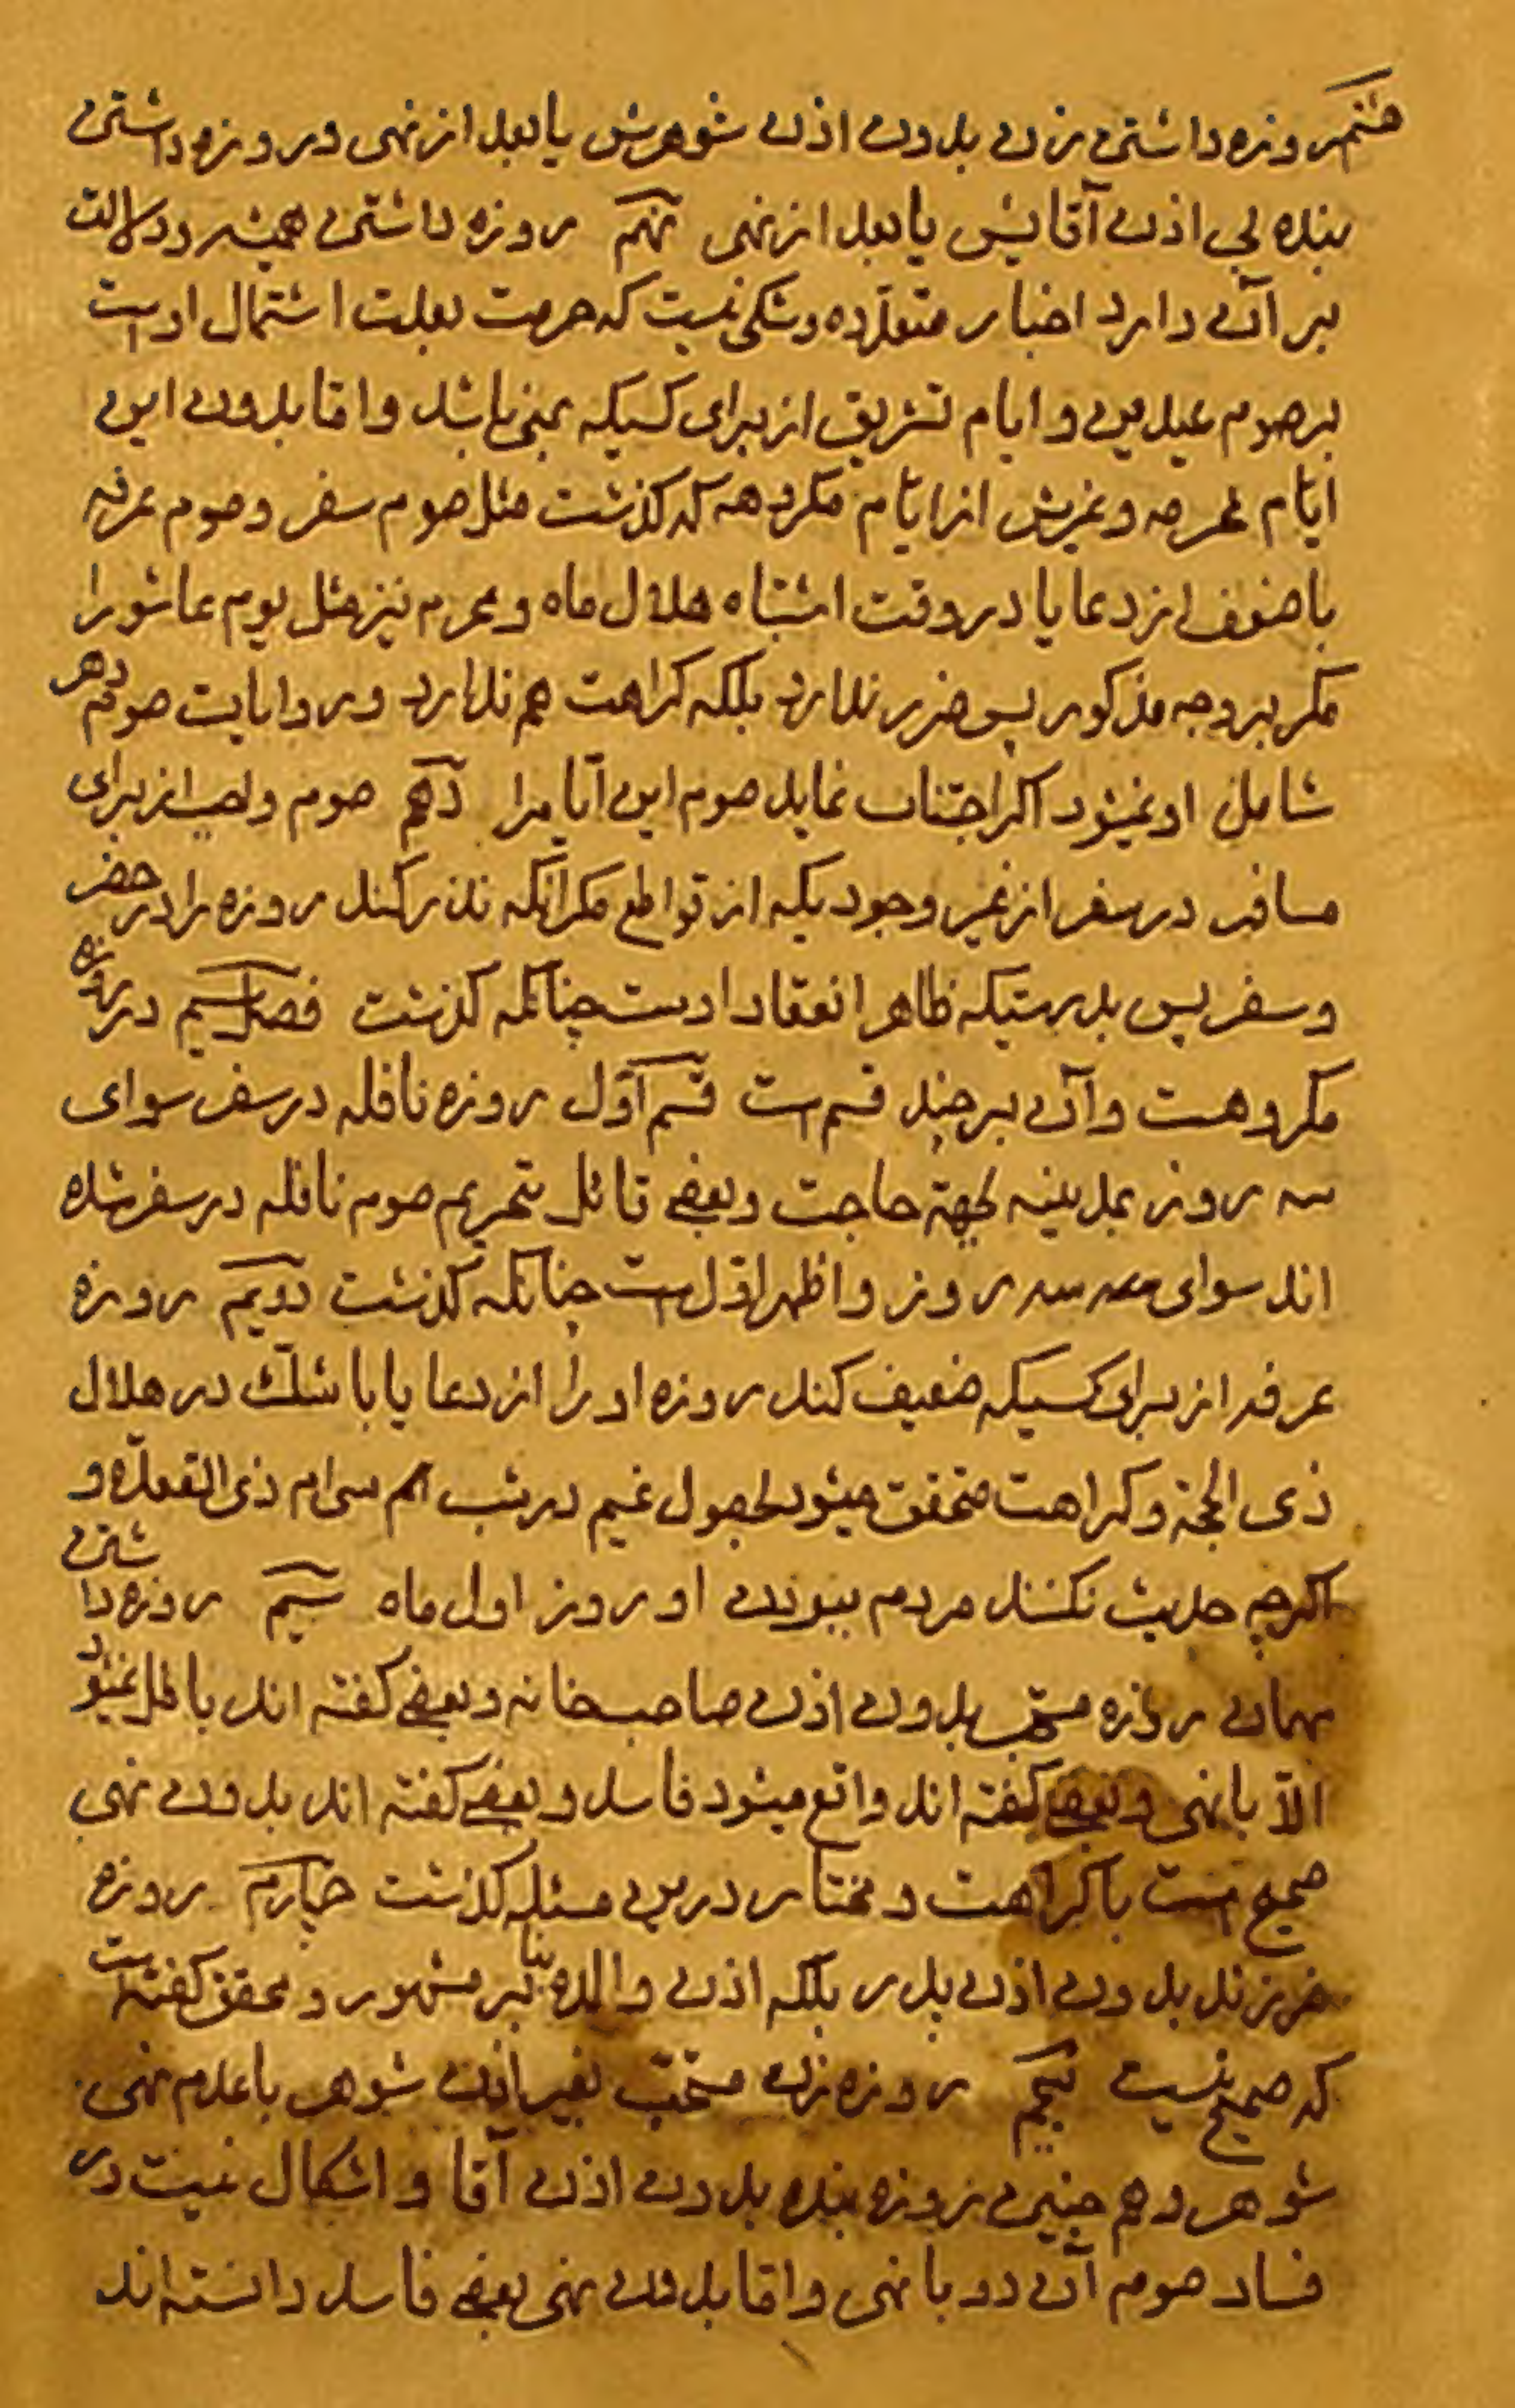 هشتم روزه داشتن زن بدون اذن شوهرش یا بعد از نهی و روزه داشتن
بنده بی اذن آقایش یا بعد از نهی نهم روزه داشتن همیشه و دلالت
بر آن دارد اخبار متعدّده و شکی نیست که حرمت بعلت اشتمال اوست
بر صوم عیدین و ایام تشریق از برای کسیکه بمنی باشد و امّا بدون این
ایّام محرمه و غیرش از ایّام مکروهه که کذشت مثل صوم سفر و صوم عرفه
با ضعف از دعا یا در وقت اشتباه هلال ماه و محرم نیز مثل یوم عاشورا
مکر بر وجه مذکور پس ضرر ندارد بلکه کراهت هم ندارد و روایات صوم دهر
شامل او نمیشود اکر اجتناب نماید صوم این ایّام را دهم صوم واجب از برای
مسافر در سفر از غیر وجود یکه از قواطع مکر آنکه نذر کند روزه را در حضر
و سفر پس بدرستیکه ظاهر انعقاد اوست چنانکه کذشت فصل سیم در روزه
مکروهست و آن بر چند قسم است قسم اوّل روزه نافله در سفر سوای
سه روز بمدینه لجهة حاجت و بعضی قائل بتحریم صوم نافله در سفر شده
اند سوای سه روز و اظهر اوّل است چنانکه کذشت دویم روزه
عرفه از برای کسیکه ضعیف کند روزه او را از دعا یا با شکّ در هلال
ذی الحجّة و کراهت متحقق میشود بحصول غیم در شب سی ام ذی القعدّه و
اکرچه حدیث نکنند مردم ببودن او روز اول ماه سیم روزه داشتن
مهمان روزه مستحب بدون اذن صاحبخانه و بعضی کفته اند باطل نمیشود
الّا با نهی و بعضی کفته اند واقع میشود فاسد و بعضی کفته اند بدون نهی
صحیح است با کراهت و مختار درین مسئله کذشت چهارم روزه
فرزند بدون اذن پدر بلکه اذن والده بنا بر مشهور و محقق کفته است
که صحیح نیست پنجم روزه زن مستحب بغیر اذن شوهر با عدم نهی
شوهر و هم چنین روزه بنده بدون اذن آقا و اشکال نیست در
فساد صوم آن دو با نهی و امّا بدون نهی بعضی فاسد دانسته اند